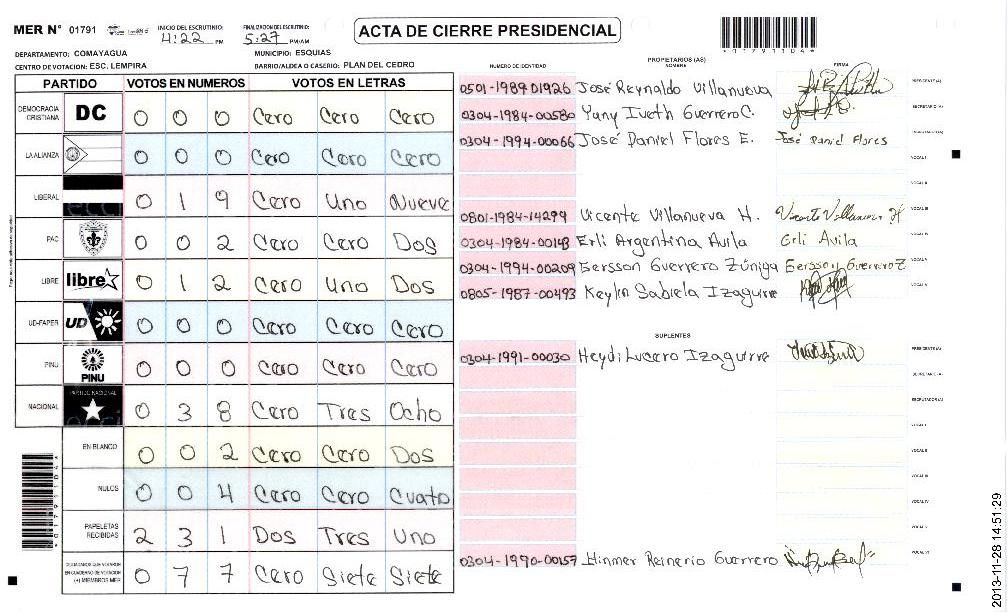 MER N° 01791
INICIO DEL ESCRUTINIO: 4:22 PM
FINALIZACION DEL ESCRUTINIO: 5:27 PM/AM
ACTA DE CIERRE PRESIDENCIAL
*01791104*
DEPARTAMENTO: COMAYAGUA
MUNICIPIO: ESQUIAS
CENTRO DE VOTACION: ESC. LEMPIRA
BARRIO/ALDEA O CASERIO: PLAN DEL CEDRO
PARTIDO VOTOS EN NUMEROS VOTOS EN LETRAS
DEMOCRACIA CRISTIANA DC 0 0 0 Cero Cero Cero
LA ALIANZA 0 0 0 Cero Cero Cero
LIBERAL 0 1 9 Cero Uno Nueve
PAC 0 0 2 Cero Cero Dos
LIBRE libre 0 1 2 Cero Uno Dos
UD-FAPER UD 0 0 0 Cero Cero Cero
PINU PINU 0 0 0 Cero Cero Cero
NACIONAL PARTIDO NACIONAL 0 3 8 Cero Tres Ocho
EN BLANCO 0 0 2 Cero Cero Dos
NULOS 0 0 4 Cero Cero Cuato
PAPELETAS RECIBIDAS 2 3 1 Dos Tres Uno
CIUDADANOS QUE VOTARON EN CUADERNO DE VOTACION (+) MIEMBROS MER 0 7 7 Cero Siete Siete
*01791104*
NUMERO DE IDENTIDAD
PROPIETARIOS (AS)
NOMBRE
FIRMA
0501-1989-01926 José Reynaldo Villanueva PRESIDENTE(A)
0304-1984-00580 Yuny Iveth Guerrero C. SECRETARIO (A)
0304-1994-00066 José Daniel Flores E. José Daniel Flores ESCRUTADOR(A)
VOCAL I
VOCAL II
0801-1984-14299 Vicente Villanueva H. Vicente Villanueva H VOCAL III
0304-1984-00143 Erli Argentina Avila Erli Avila VOCAL IV
0304-1994-00209 Gersson Guerrero Zúniga Gersson Guerrero Z VOCAL V
0805-1987-00493 Keylin Sabiela Izaguirre VOCAL VI
SUPLENTES
0304-1991-00030 Heydi Lucero Izaguirre PRESIDENTE(A)
SECRETARIO(A)
ESCRUTADOR(A)
VOCAL I
VOCAL II
VOCAL III
VOCAL IV
VOCAL V
0304-1970-00157 Hinmer Reinerio Guerrero VOCAL VI
2013-11-28 14:51:29